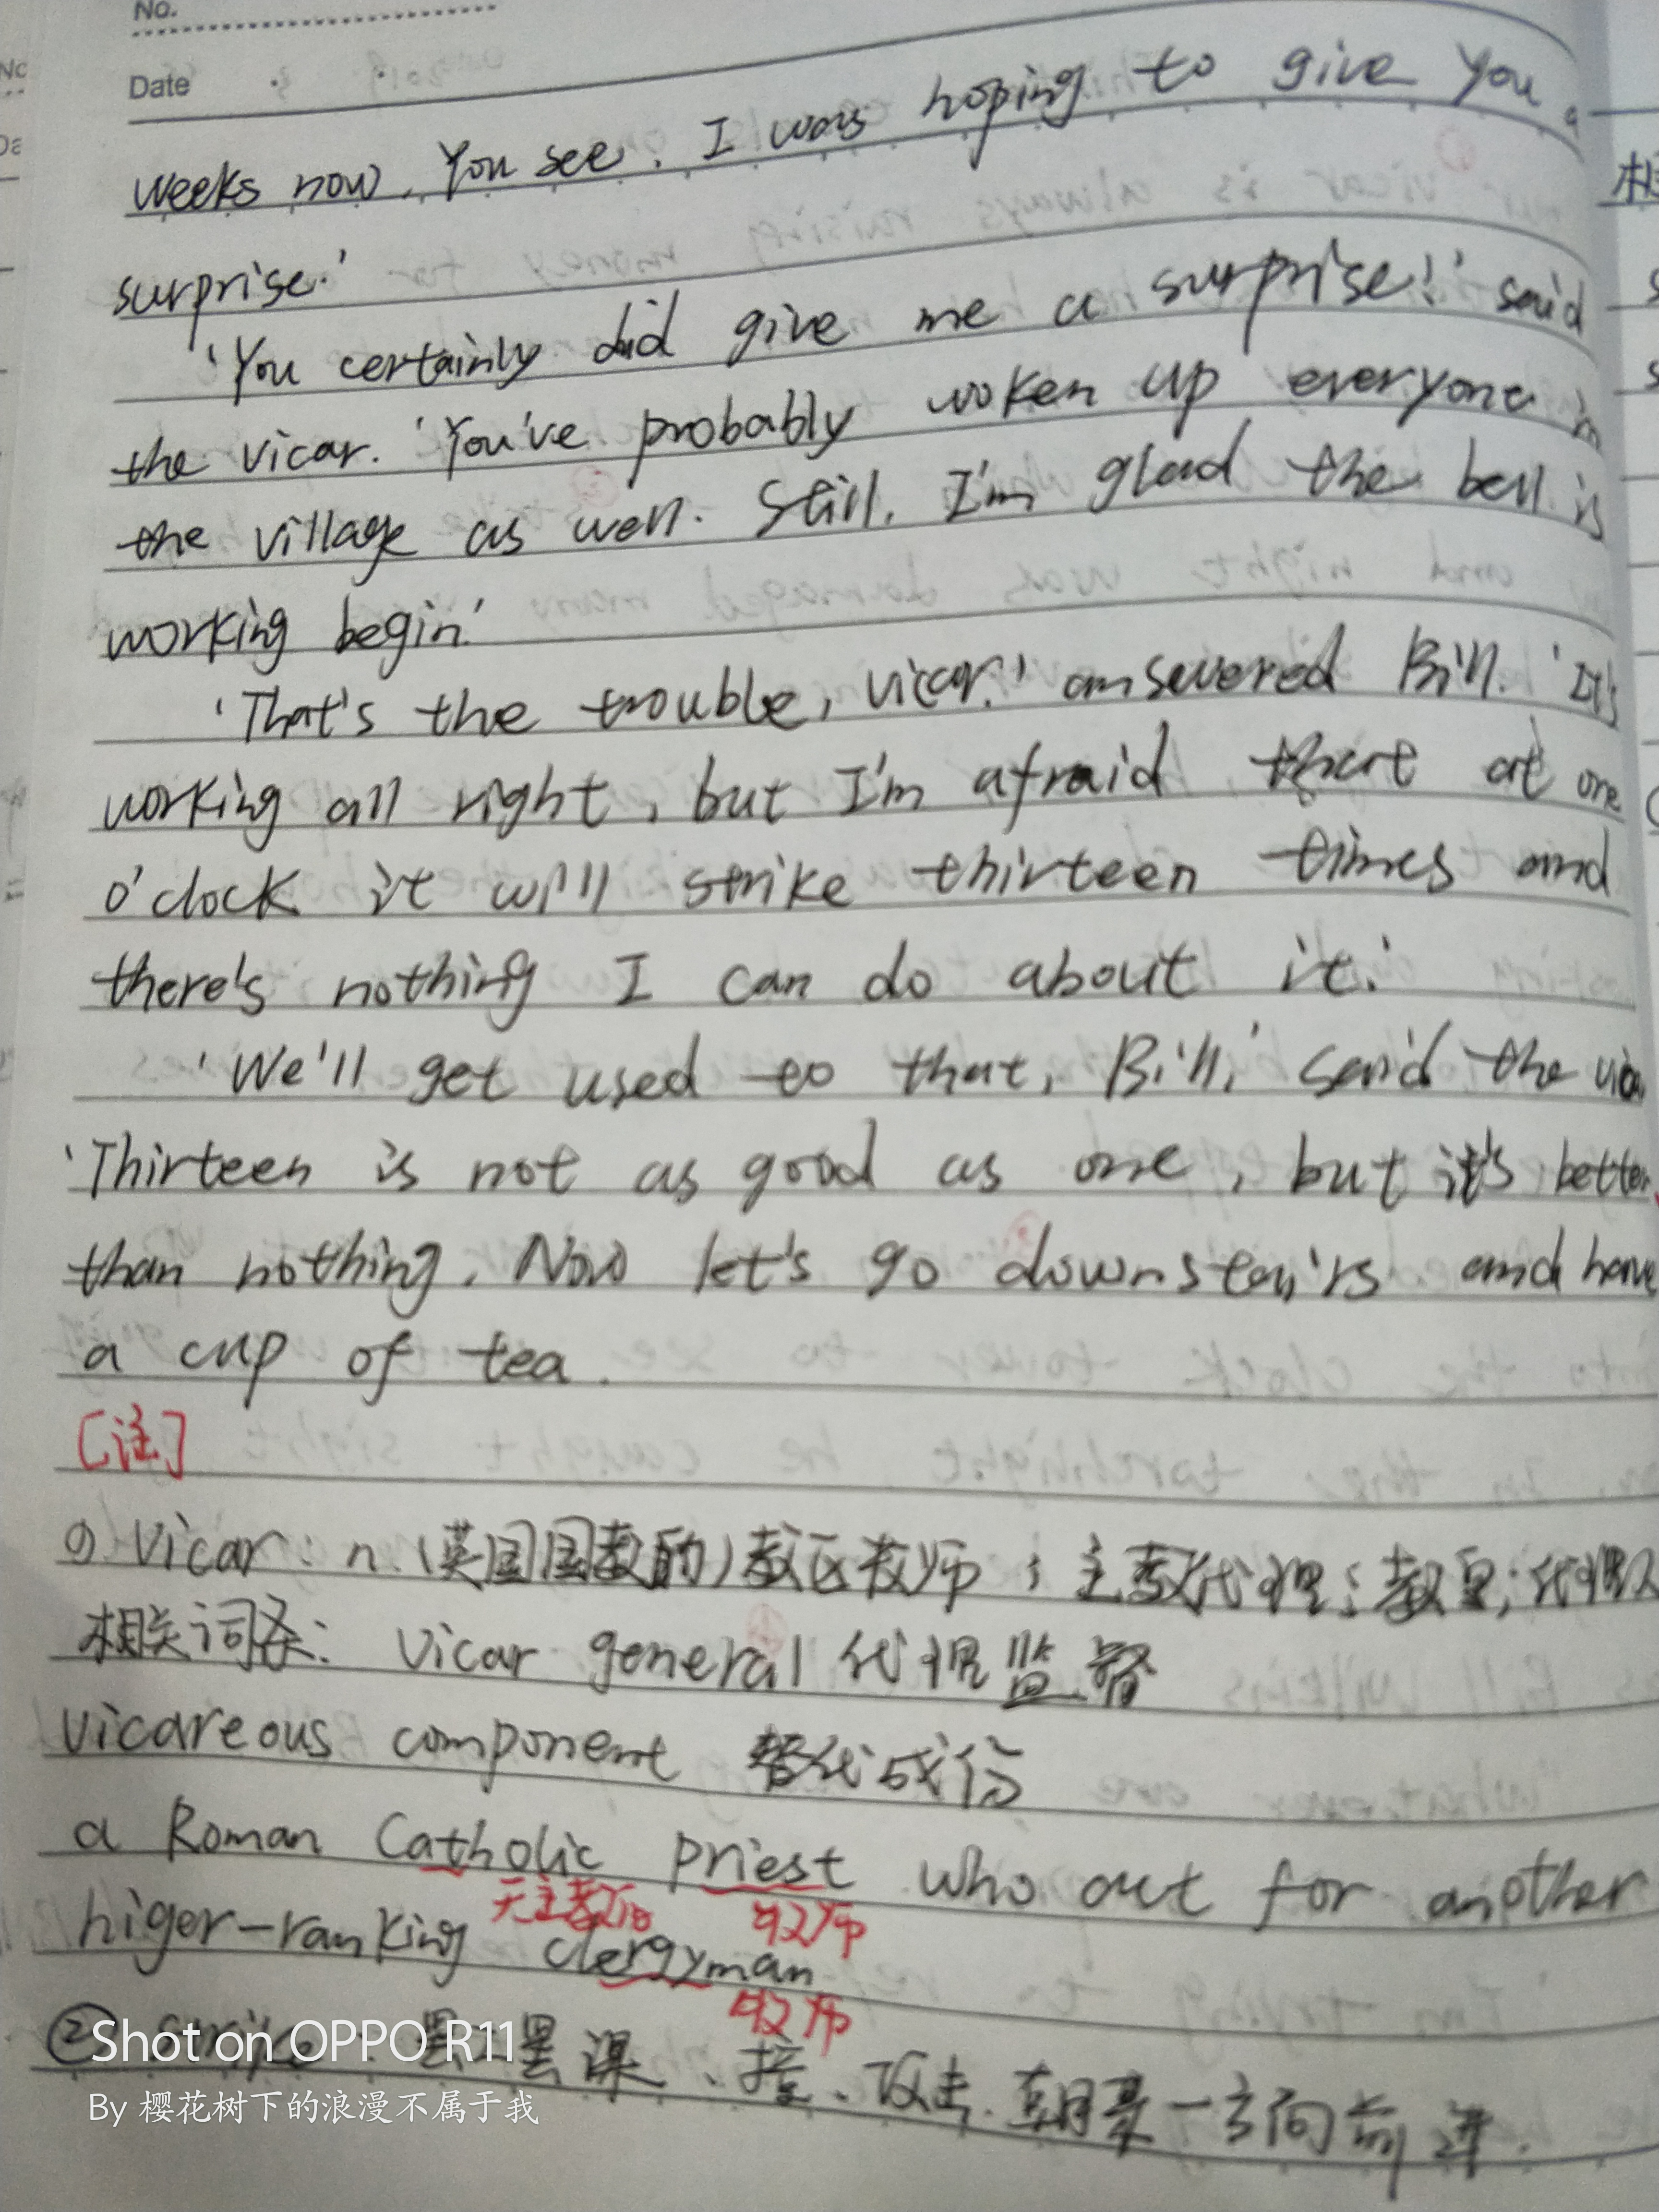 No.
Date
weeks now. You see, I was hoping to give you a
surprise.'
'You certainly did give me a surprise!' said
the vicar. 'You've probably woken up everyone in
the village as well. Still, I'm glad the bell is
working begin.'
'That's the trouble, vicar.' answered Bill. 'It's
working all right, but I'm afraid that at one
o'clock it will strike thirteen times and
there's nothing I can do about it.'
'We'll get used to that, Bill,' said the vicar
'Thirteen is not as good as one, but it's better
than nothing. Now let's go downstairs and have
a cup of tea.
[注]
① vicar: n.(英国国教的)教区牧师;主教代理;教皇;代理人
相关词条: vicar general 代理监督
vicareous component 替代成份
a Roman Catholic priest who act for another
天主教的 牧师
higer-ranking clergyman
牧师
② 罢课、撞、攻击、朝某一方向前进.
Shot on OPPO R11
By 樱花树下的浪漫不属于我